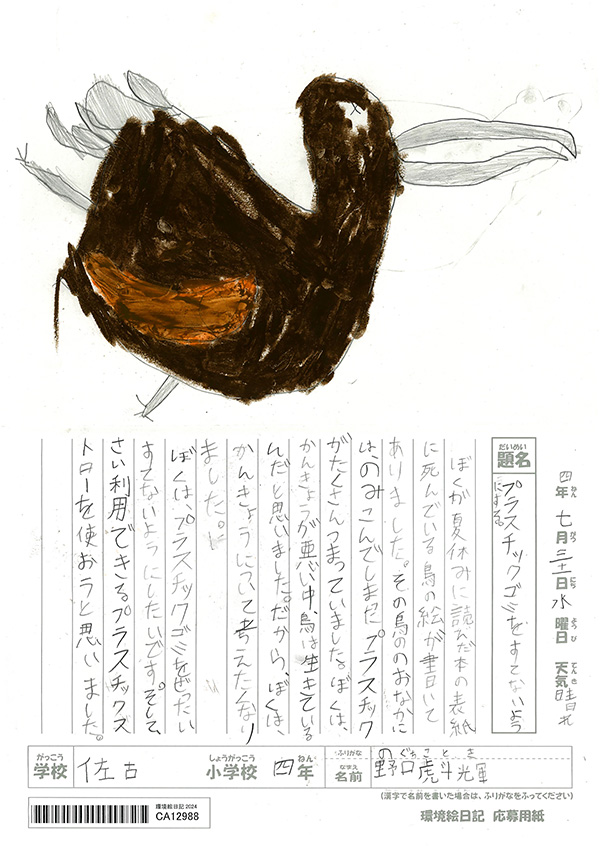 四年 七月三十一日 水曜日 天気 晴れ
ねん がつ にち ようび てんき
だいめい
題名
プラスチックゴミをすてないよう
にする。
ぼくが夏休みに読んだ本の表紙
に死んでいる鳥の絵が書いて
ありました。その鳥ののおなかに
は、のみこんでしまた プラスチック
がたくさんつまっていました。ぼくは、
かんきょうが悪い中、鳥は生きている
んだと思いました。だから、ぼくは、
かんきょうについて考えたくなり
ました。
ぼくは、プラスチックゴミをぜったい
すてないようにしたいです。そして、
さい利用できるプラスチックス
トターを使おうと思いました。
がっこう しょうがっこう ねん ふりがな のぐちことき
学校 佐古 小学校 四年 なまえ 名前 野口虎斗輝
(漢字で名前を書いた場合は、ふりがなをふってください)
環境絵日記 2024
CA12988
環境絵日記 応募用紙